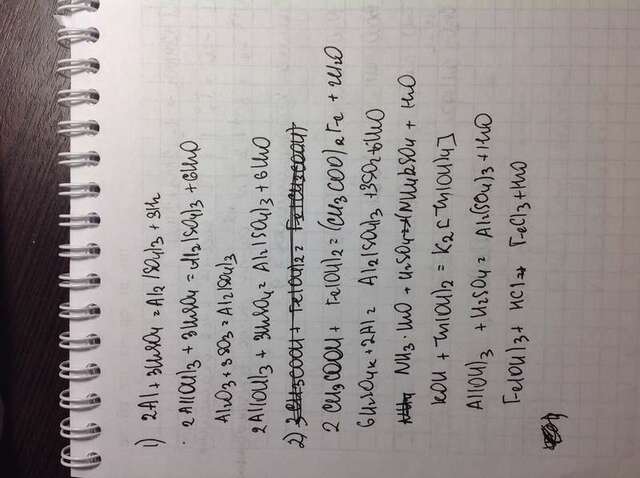 1) 2Al + 3H2SO4 = Al2(SO4)3 + 3H2
2Al(OH)3 + 3H2SO4 = Al2(SO4)3 + 6H2O
Al2O3 + 3SO3 = Al2(SO4)3
2Al(OH)3 + 3H2SO4 = Al2(SO4)3 + 6H2O
2) 3CH3COOH + Fe(OH)2 = Fe(CH3COOH)
2 CH3COOH + Fe(OH)2 = (CH3COO)2Fe + 2H2O
6H2SO4к + 2Al = Al2(SO4)3 + 3SO2 + 6H2O
NH3 · H2O + H2SO4 = (NH4)2SO4 + H2O
KOH + Zn(OH)2 = K2[Zn(OH)4]
Al(OH)3 + H2SO4 = Al2(SO4)3 + H2O
Fe(OH)3 + HCl → FeCl3 + H2O